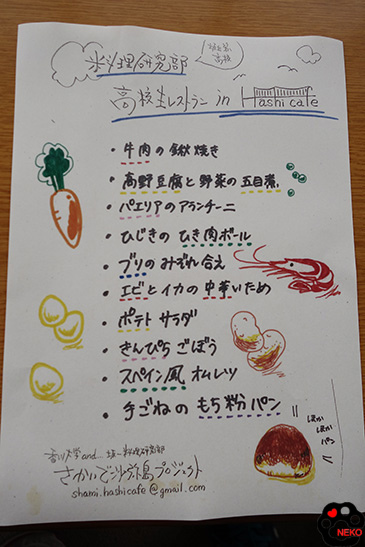 料理研究部
高校生レストラン in Hashi cafe
・牛肉の鍬焼き
・高野豆腐と野菜の五目煮
・パエリアのアランチーニ
・ひじきの ひき肉ボール
・ブリの みぞれ合え
・エビとイカの 中華いため
・ポテト サラダ
・きんぴら ごぼう
・スペイン風 オムレツ
・手ごねの もち粉パン
ほか
ほか
パン
香川大学 and
さかいで沙弥島プロジェクト
shami.hashicafe@gmail.com
NEKO